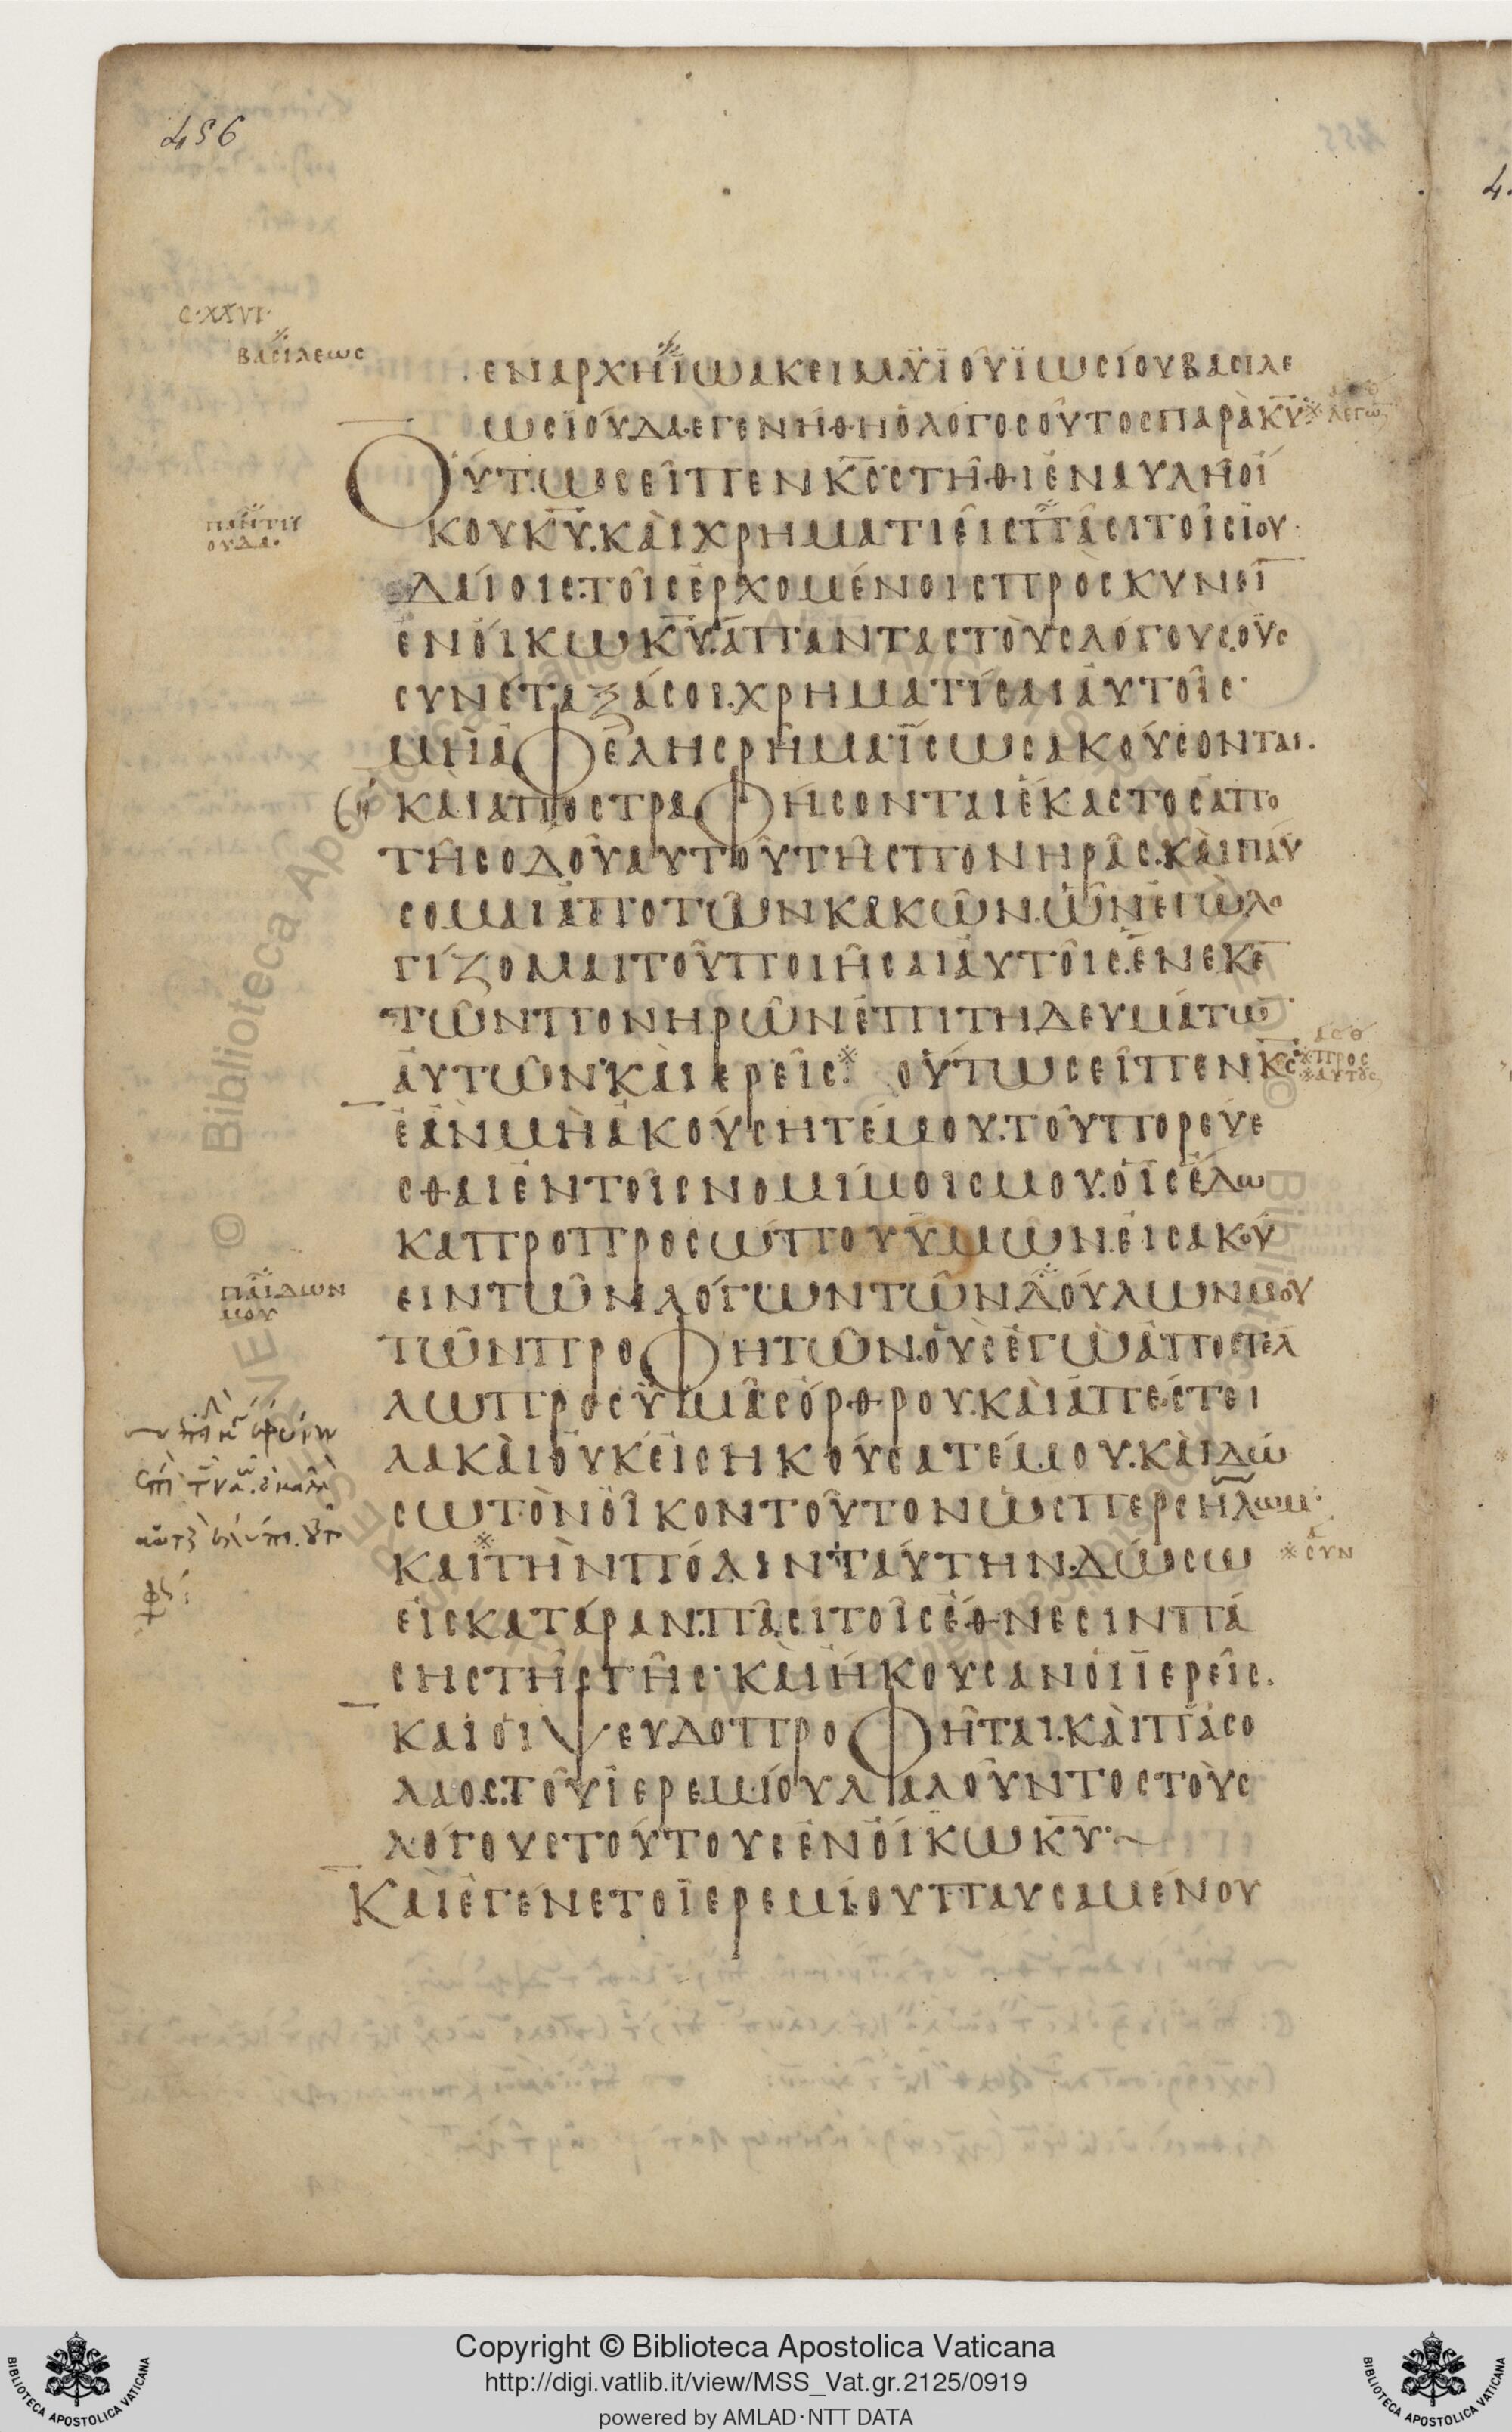 456
C·XXVI·
ΒΑCΙΛΕΩC
ΕΝΑΡΧΗΪΩΑΚΕΙΜ.ΫΙΟΥΪΩCΙΟΥΒΑCΙΛΕ
ΩCΙΟΥΔΑ.ΕΓΕΝΗΘΗΟΛΟΓΟCΟΥΤΟCΠΑΡΑΚΥ
※ΛΕΓΩ
ΟΥΤΩCΕΙΠΕΝΚC·CΤΗΘΙΕΝΑΥΛΗΟΙ
ΠΑΝΤΙΪ
ΟΥΔΑ·
ΚΟΥΚΥ.ΚΑΙΧΡΗΜΑΤΙΕΙCΠΑCΙΤΟΙCΙΟΥ
ΔΑΙΟΙC.ΤΟΙCΕΡΧΟΜΕΝΟΙCΠΡΟCΚΥΝΕΙ
ΕΝΟΙΚΩΚΥ.ΑΠΑΝΤΑCΤΟΥCΛΟΓΟΥC.ΟΥC
CΥΝΕΤΑΞΑCΟΙ.ΧΡΗΜΑΤΙCΑΙΑΥΤΟΙC·
ΜΗΑΦΕΛΗCΡΗΜΑΪCΩCΑΚΟΥCΟΝΤΑΙ.
ΚΑΙΑΠΟCΤΡΑΦΗCΟΝΤΑΙΕΚΑCΤΟCΑΠΟ
ΤΗCΟΔΟΥΑΥΤΟΥΤΗCΠΟΝΗΡΑC.ΚΑΙΠΑΥ
CΟΜΑΙΑΠΟΤΩΝΚΑΚΩΝ.ΩΝΕΓΩΛΟ
ΓΙΖΟΜΑΙΤΟΥΠΟΙΗCΑΙΑΥΤΟΙC.ΕΝΕΚΕ
ΤΩΝΠΟΝΗΡΩΝΕΠΙΤΗΔΕΥΜΑΤΩ
ΑΥΤΩΝ·ΚΑΙΕΡΕΙC※ ΟΥΤΩCΕΙΠΕΝΚC
※ΠΡΟC
※ΑΥΤΟC
ΕΑΝΜΗΑΚΟΥCΗΤΕΜΟΥ.ΤΟΥΠΟΡΕΥΕ
CΘΑΙΕΝΤΟΙCΝΟΜΙΜΟΙCΜΟΥ.ΟΙCΕΔΩ
ΚΑΠΡΟΠΡΟCΩΠΟΥΥΜΩΝ.ΕΙCΑΚΟΥ
ΠΑΙΔΩΝ
ΜΟΥ
ΕΙΝΤΩΝΛΟΓΩΝΤΩΝΔΟΥΛΩΝΜΟΥ
ΤΩΝΠΡΟΦΗΤΩΝ.ΟΥCΕΓΩΑΠΟCΤΕΛ
ΛΩΠΡΟCΫΜΑCΟΡΘΡΟΥ.ΚΑΙΑΠΕCΤΕΙ
ΛΑΚΑΙΟΥΚΕΙCΗΚΟΥCΑΤΕΜΟΥ.ΚΑΙΔΩ
CΩΤΟΝΟΙΚΟΝΤΟΥΤΟΝΩCΠΕΡCΗΛΩΜ·
ΚΑΙ※ΤΗΝΠΟΛΙΝΤΑΥΤΗΝ.ΔΩCΩ
※CΥΝ
ΕΙCΚΑΤΑΡΑΝ.ΠΑCΙΤΟΙCΕΘΝΕCΙΝΠΑ
CΗCΤΗCΓΗC·ΚΑΙΗΚΟΥCΑΝΟΙΪΕΡΕΙC.
ΚΑΙΟΙΨΕΥΔΟΠΡΟΦΗΤΑΙ.ΚΑΙΠΑCΟ
ΛΑΟC.ΤΟΥΪΕΡΕΜΙΟΥΛΑΛΟΥΝΤΟCΤΟΥC
ΛΟΓΟΥCΤΟΥΤΟΥCΕΝΟΙΚΩΚΥ·
ΚΑΙΕΓΕΝΕΤΟΪΕΡΕΜΙΟΥΠΑΥCΑΜΕΝΟΥ
Copyright © Biblioteca Apostolica Vaticana
http://digi.vatlib.it/view/MSS_Vat.gr.2125/0919
powered by AMLAD·NTT DATA
BIBLIOTECA APOSTOLICA VATICANA
BIBLIOTECA APOSTOLICA VATICANA